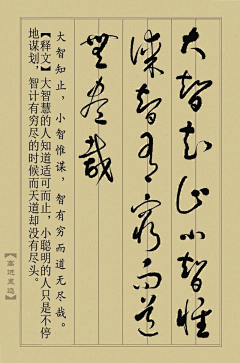 大智知止小智惟
谋智有穷而道
无尽哉
大智知止，小智惟谋，智有穷而道无尽哉。
【释文】大智慧的人知道适可而止，小聪明的人只是不停
地谋划，智计有穷尽的时候而天道却没有尽头。